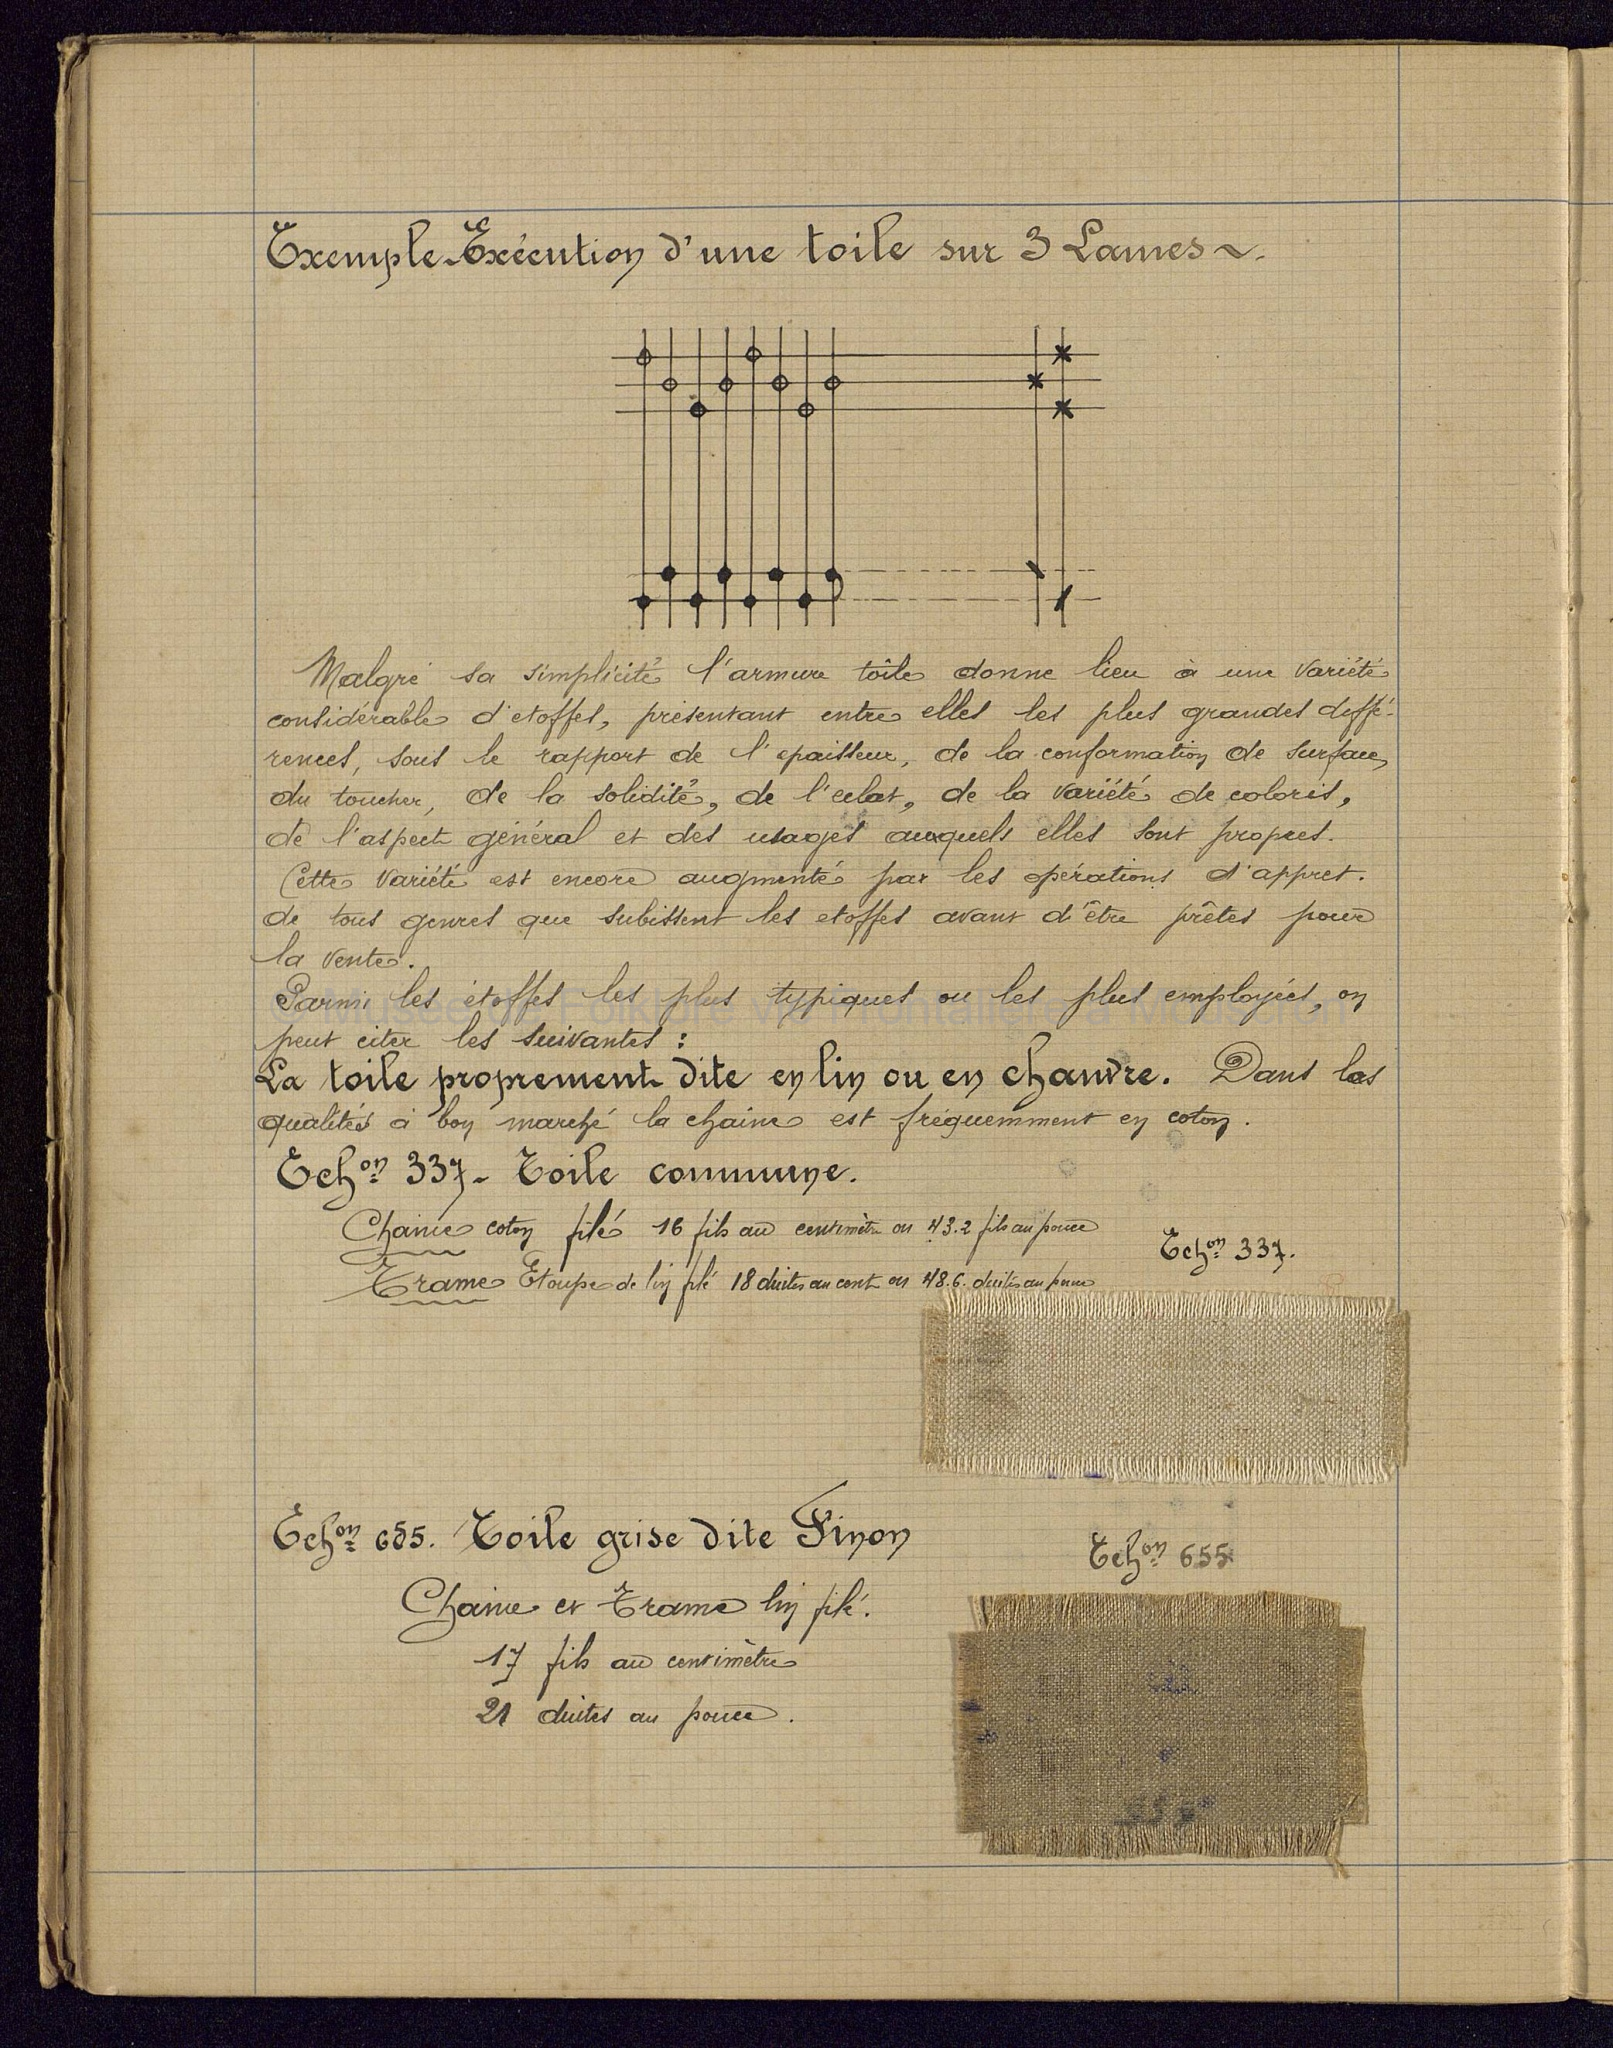 Exemple. Exécution d'une toile sur 3 Lames ~.
Malgré sa simplicité l'armure toile donne lieu à une variété
considérable d'étoffes, présentant entre elles les plus grandes diffé-
rences, sous le rapport de l'épaisseur, de la conformation de surface,
du toucher, de la solidité, de l'éclat, de la variété de coloris,
de l'aspect général et des usages auxquels elles sont propres.
Cette variété est encore augmenté par les opérations d'appret.
de tous genres que subissent les etoffes avant d'être prêtes pour
la vente.
Parmi les étoffes les plus typiques ou les plus employées, on
peut citer les suivantes :
La toile proprement dite en lin ou en chanvre. Dans les
qualités à bon marché la chaine est fréquemment en coton.
Echon 337. Toile commune.
Chaine coton filé 16 fils au centimètre ou 43.2 fils au pouce
Trame Etoupe de lin filé 18 duites au cent ou 48.6. duites au pouce
Echon 337.
Echon 655. Toile grise dite Finon
Echon 655
Chaine et Trame lin filé.
17 fils au centimètre
21 duites au pouce.
© Musée de Folklore vie Frontalière à Mouscron